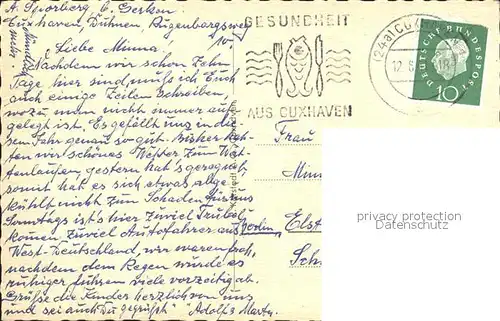 A. Sporberg b. Gerken.
Cuxhaven, Duhnen, Rugenbargsweg
10
Liebe Minna.
Nachdem wir schon Zehn
Tage hier sind, muß ich Euch
auch einige Zeilen Schreiben,
wozu man nicht immer auf
gelegt ist. Es gefällt uns in die
sem Jahr genau so gut. Bisher hat
ten wir schönes Wetter zum Wat
tenlaufen, gestern hat's geregnet,
somit hat es sich etwas abge
kühlt nicht zum Schaden für uns
Sonntags ist's hier zuviel Trubel,
kommen zuviel Autofahrer aus
West-Deutschland, wir waren froh,
nachdem dem Regen wurde es
ruhiger fuhren viele vorzeitig ab.
Grüße die Kinder herzlich von uns
und sei auch Du gegrüßt Adolf & Marty.
GESUNDHEIT
AUS CUXHAVEN
(24a) CUX
12. 8.
DEUTSCHE BUNDESPOST
10
Frau
Berlin,
privacy protection
Datenschutz